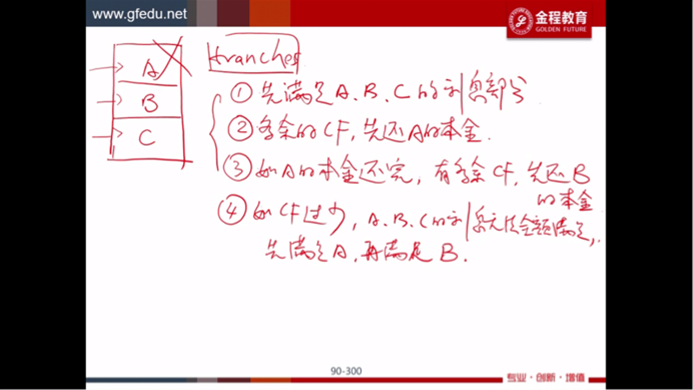 www.gfedu.net
金程教育
GOLDEN FUTURE
Hranches
A
B
C
① 先满足A、B、C的利息部分.
② 多余的CF, 先还A的本金.
③ 如A的本金还完, 有多余CF, 先还B
的本金
④ 如CF过少, A、B、C的利息无法全额满足,
先满足A, 再满足B.
90-300
专业·创新·增值